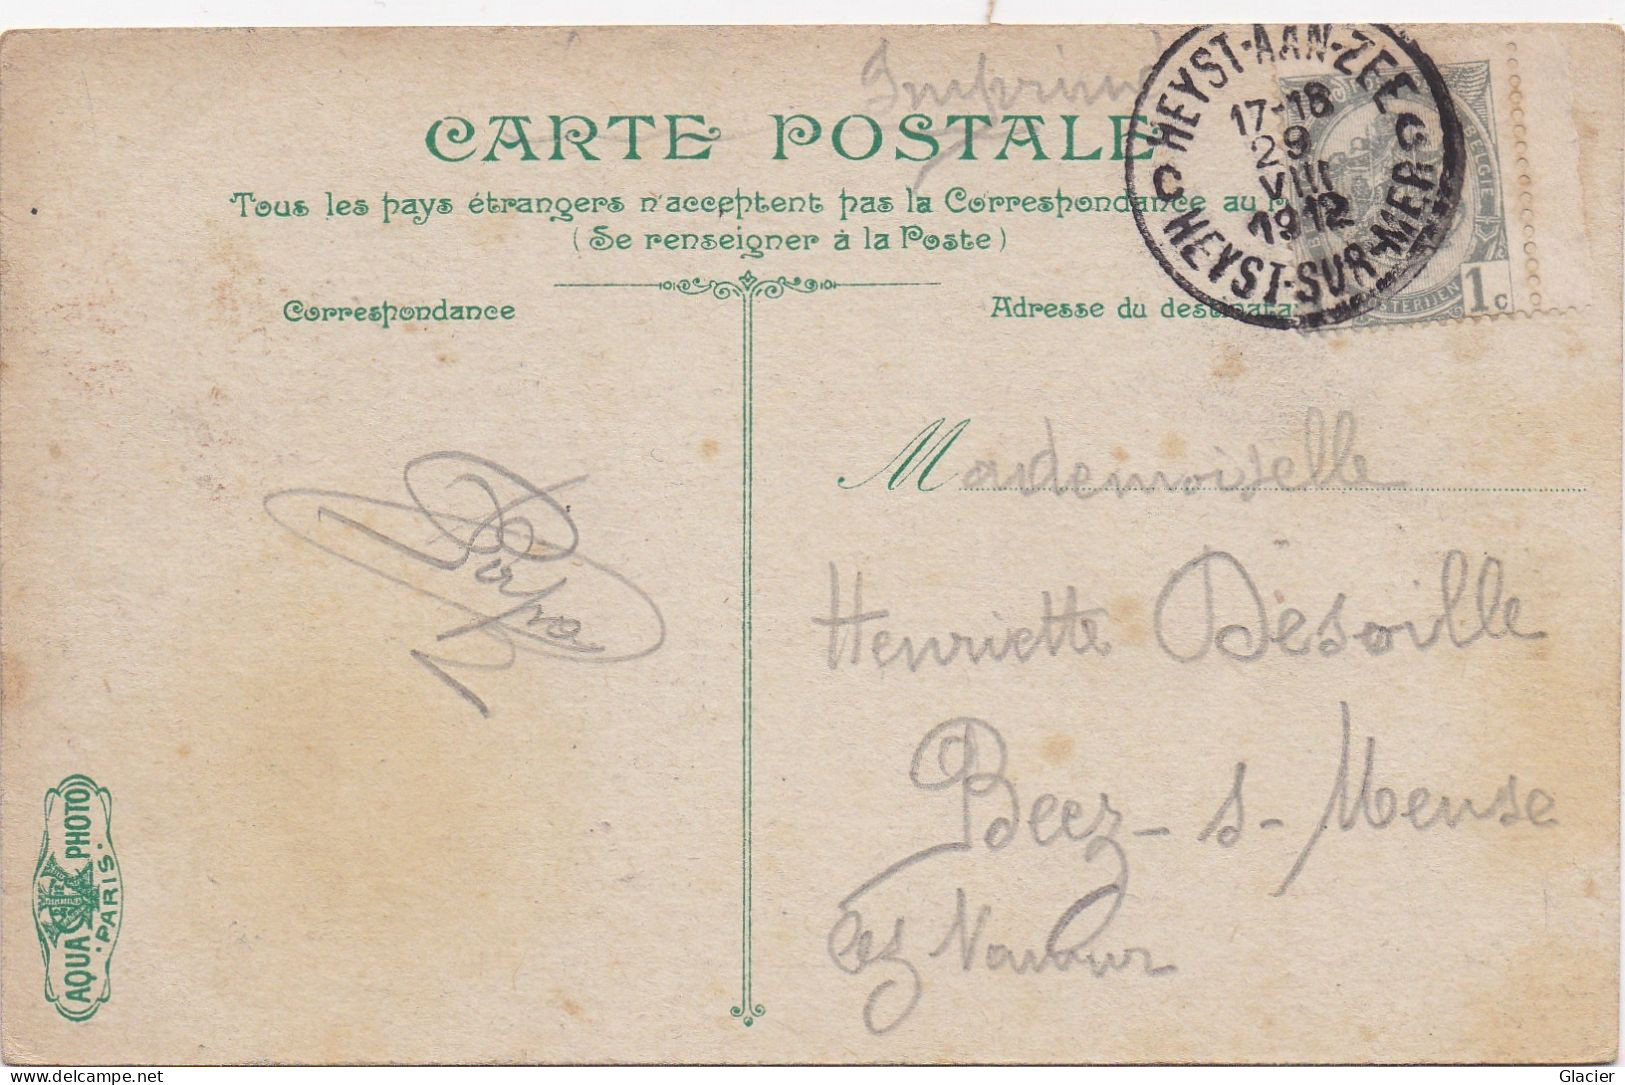 Imprimé
CARTE POSTALE
Tous les pays étrangers n'acceptent pas la Correspondance au
(Se renseigner à la Poste)
Correspondance
Adresse du destinata
HEYST-AAN-ZEE
17-18
29
VIII
1912
C HEYST-SUR-MER C
BELGIE
1c
Mademoiselle
Henriette Desoille
Beez-s-Meuse
lez Namur
Papa
AQUA PHOTO
PARIS
delcampe.net
Glacier